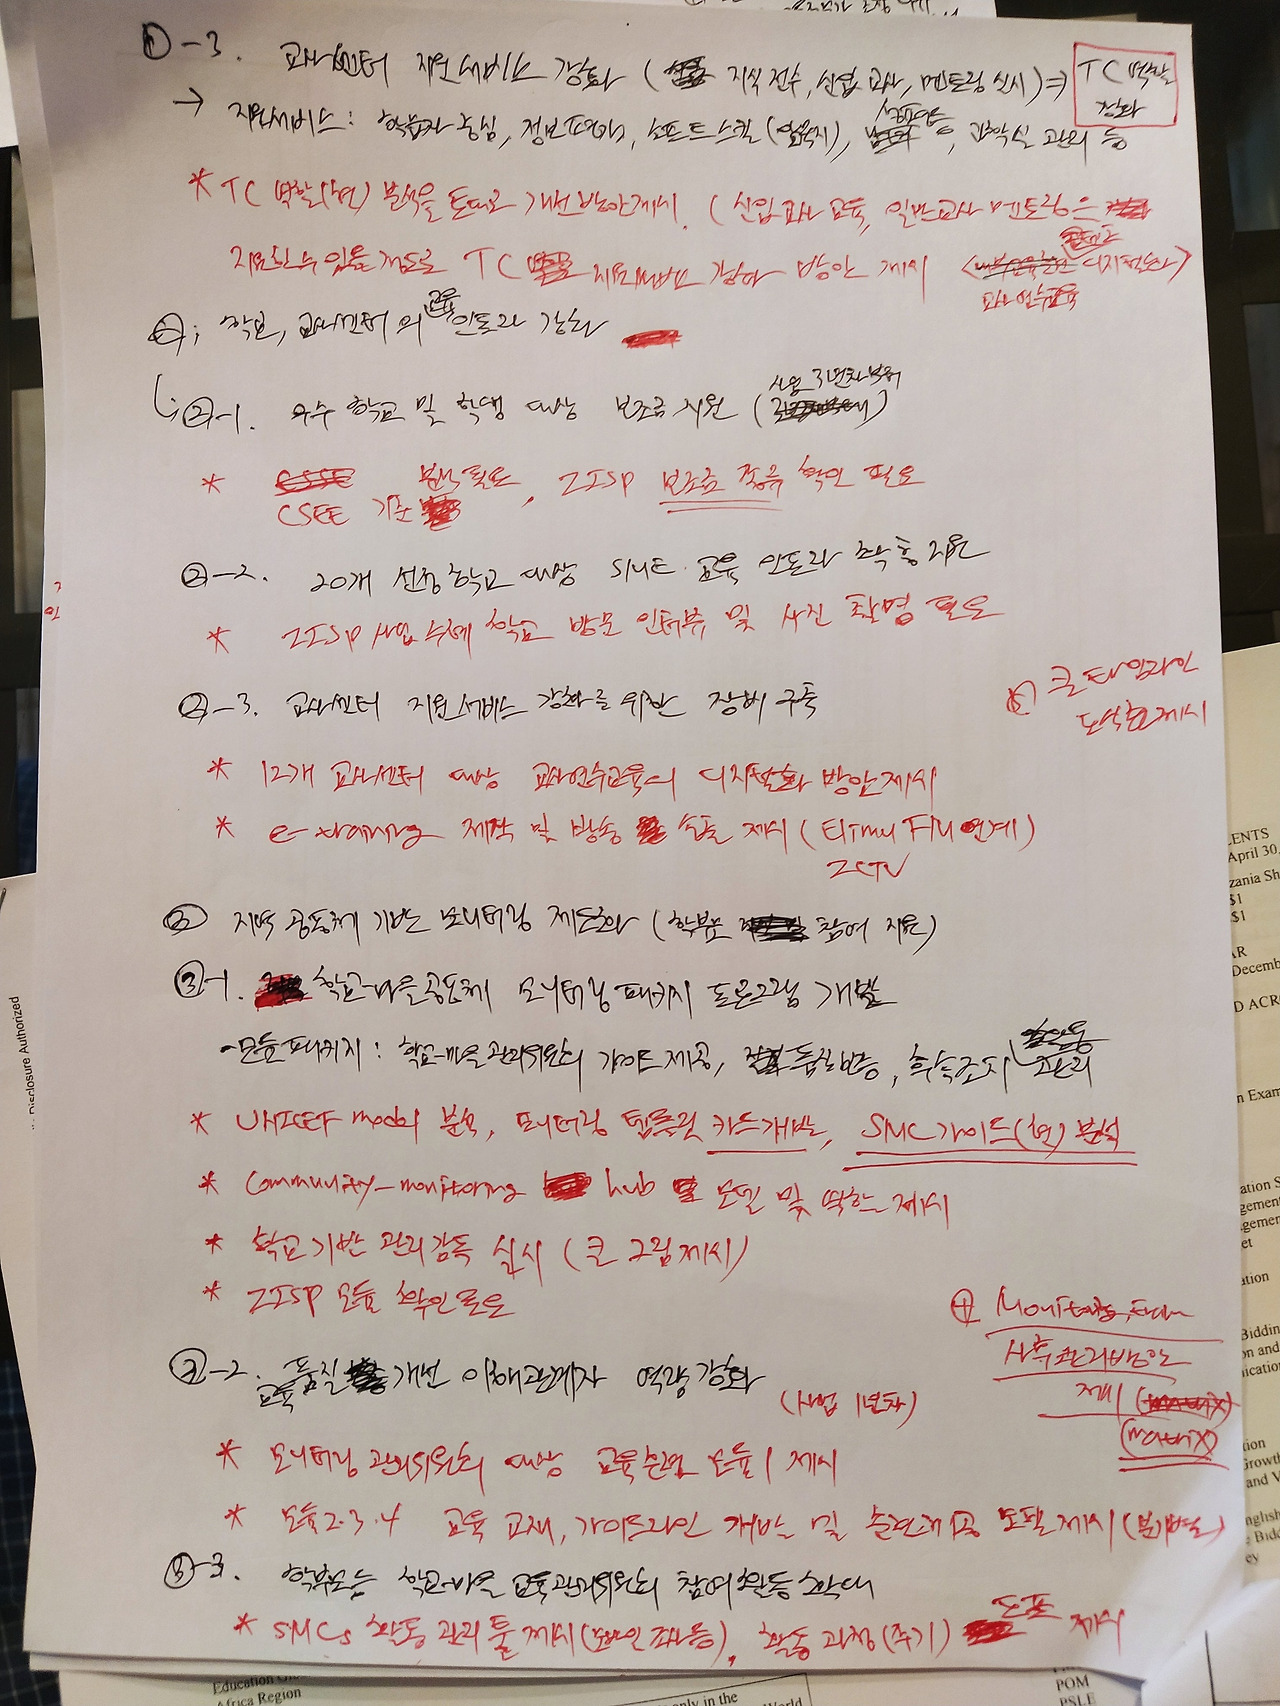 ①-3. 교사센터 지원서비스 강화 ( 지식 전수, 신입 교사, 멘토링 실시) ⇒ TC 역할 강화
→ 지원서비스 : 학습자 중심, 정보 , 소프트스킬 ( ), , 과학실 관리 등
* TC 역할(현) 분석을 토대로 개선방안 제시. ( 신입교사 교육, 일반교사 멘토링을
지원할 수 있을 정도로 TC 지원서비스 강화 방안 제시 < 디지털화>
교사연수교육
②; 학교, 교사센터의 교육 인프라 강화
②-1. 우수 학교 및 학생 대상 보조금 지원 (사업 3년차부터)
* 분석필요
CSEE 기준 , ZISP 보조금 종류 확인 필요
②-2. 20개 선정 학교 대상 SME 교육 인프라 확충 지원
* ZISP 사업 수혜 학교 방문 인터뷰 및 사진 촬영 필요
②-3. 교사센터 지원서비스 강화를 위한 장비 구축
큰 타임라인
도식화 제시
* 12개 교사센터 대상 교사연수교육의 디지털화 방안 제시
* e-training 제작 및 방송 송출 제시 (Elimu FM 연계)
ZCTV
③ 지역 공동체 기반 모니터링 제도화 (학부모 참여 지원)
③-1. 학교-마을공동체 모니터링 패키지 프로그램 개발
- 모듈패키지 : 학교-마을 관리위원회 가이드 제공, 품질 반응, 후속조치 관리
* UNICEF model 분석, 모니터링 템플릿 카드개발, SMC 가이드(현) 분석
* Community-monitoring hub 모델 및 역할 제시
* 학교 기반 관리감독 실시 (큰 그림 제시)
* ZISP 모듈 확인 필요
⊕ Monitoring,
사후관리방안
제시
(matrix)
③-2. 교육 품질 개선 이해관계자 역량 강화
(사업 1년차)
* 모니터링 관리위원회 대상 교육훈련 모듈 1 제시
* 모듈 2.3.4 교육 교재, 가이드라인 개발 및 훈련제공 도표 제시 (분기별로)
③-3. 학부모 등 학교-마을 교육관리위원회 참여 활동 확대
* SMCs 활동 관리 툴 제시 (모바일 조사 등), 활동 과정 (주기) 도표 제시
Disclosure Authorized
ENTS
April 30,
zania Sh
$1
$1
AR
Decemb
D ACR
n Exam
ation S
gement
gemen
et
ation
Bidding
on and
ication
tion
Growth
and V
nglish
Bidd
ey
Education
Africa Region
only in the
World
POM
PSLE